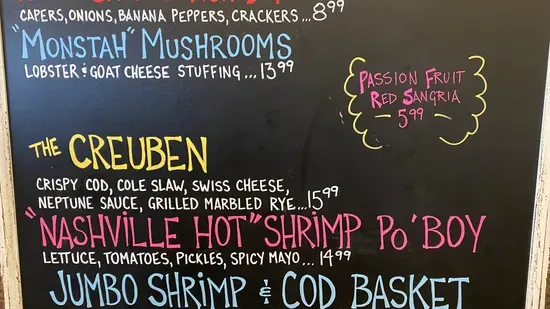 CAPERS, ONIONS, BANANA PEPPERS, CRACKERS...8 99
"MONSTAH" MUSHROOMS
LOBSTER & GOAT CHEESE STUFFING...13 99
PASSION FRUIT
RED SANGRIA
5 99
THE CREUBEN
CRISPY COD, COLE SLAW, SWISS CHEESE,
NEPTUNE SAUCE, GRILLED MARBLED RYE...15 99
"NASHVILLE HOT" SHRIMP PO'BOY
LETTUCE, TOMATOES, PICKLES, SPICY MAYO...14 99
JUMBO SHRIMP & COD BASKET